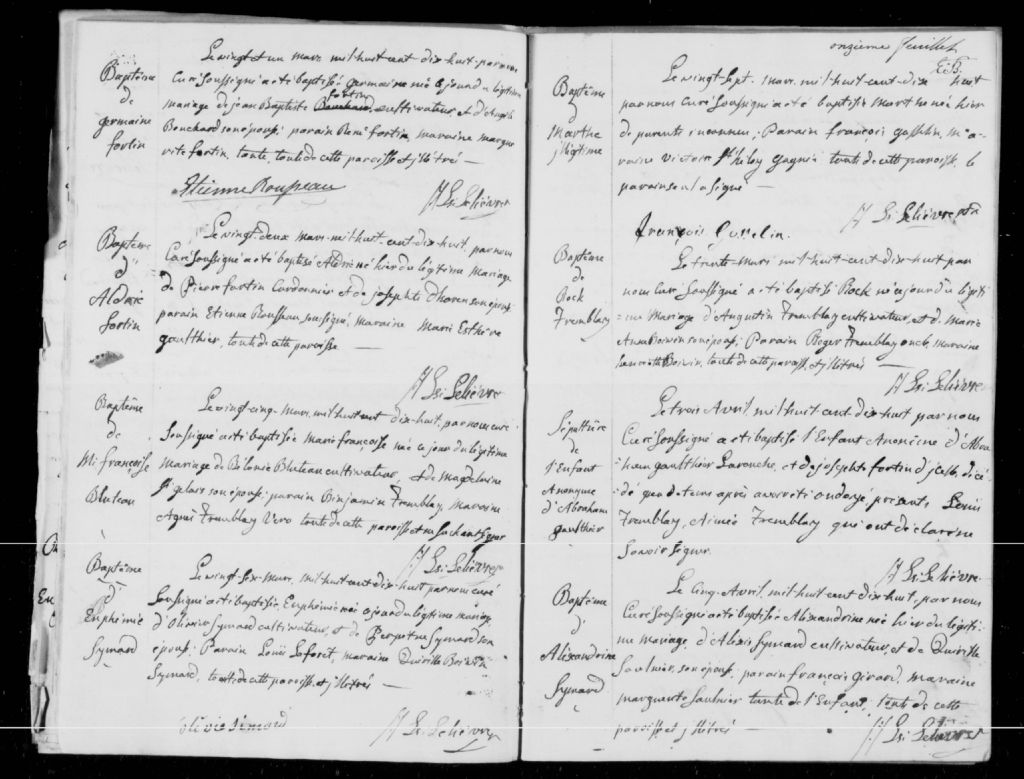 Baptême
de
germaine
fortin
Le vingt et un mars mil huit cent dix huit par nous
Curé soussigné a été baptisée germaine née ce jour du légitime
fortin
mariage de jean Baptiste Bouchard, cultivateur, et d'
Bouchard son épouse; parain René fortin, maraine margue
rite fortin, tante, tous de cette paroisse et illétrés —
Etienne Rousseau
Ls Lelièvre
Baptême
d'
Aldric
fortin
Le vingt-deux mars mil huit cent dix huit, par nous
Curé soussigné a été baptisé Aldric né hier du légitime Mariage
de Pierre fortin Cordonnier et de josephte d'horen son épouse
parain Etienne Rousseau soussigné, maraine Marie Esthère
gaulthier, tous de cette paroisse —
Ls Lelièvre
Baptême
de
Me françoise
Bluteau
Le vingt-cinq mars, mil huit cent dix-huit, par nous curé
Soussigné a été baptisée Marie françoise née ce jour du légitime
Mariage de Bélonie Bluteau cultivateur, et de Magdelaine
St gelais son épouse; parain Binjamin Tremblay, Maraine
Agnès Tremblay tous de cette paroisse et ne sachant signer
Ls Lelièvre
Baptême
d'
Euphémie
Symard
Le vingt-six mars, mil huit cent dix-huit par nous curé
Soussigné a été baptisée Euphémie née ce jour du légitime mariage
d'Olivier Symard cultivateur, et de Perpétue Symard son
épouse; Parain Louis Laforet, maraine Boivin
Symard, tous de cette paroisse, et illétrés —
Ls Lelièvre
onzième feuillet
Baptême
d
Marthe
illégitime
Le vingt-sept mars mil huit cent dix huit
par nous Curé soussigné a été baptisée Marthe née hier
de parents inconnus; Parain françois gosselin, ma
raine Victoire gagné tous de cette paroisse, le
parain seul a signé —
Ls Lelièvre ptre
françois Goselin.
Baptême
de
Rock
Tremblay
Le trente mars mil huit cent dix huit par
nous Curé soussigné a été baptisé Rock né ce jour du légiti
me Mariage d'Augustin Tremblay cultivateur, et d. Marie
Anne Boivin son épouse; Parain Roger Tremblay oncle, Maraine
Boivin, tous de cette paroisse, et illétrés —
Ls Lelièvre
Sépulture
de
l'Enfant
Anonyme
d'Abraham
gaulthier
Le trois Avril, mil huit cent dix-huit par nous
Curé soussigné a été baptisé l'Enfant Anonime d'Abra
ham gaulthier Larouche, et de josephte fortin d'icelle, décé
dé peu de tems après avoir été ondoyé, présents, Louis
Tremblay, Aimée Tremblay qui ont déclaré ne
savoir signer.
Ls Lelièvre
Baptême
d'
Alixandrine
Symard
Le cinq Avril, mil huit cent dix huit, par nous
Curé soussigné a été baptisée Alixandrine née hier du légiti
me mariage d'Alexis Symard cultivateur, et de
Saulnier, son épouse; parain françois girard, maraine
marguerite Saulnier tante de l'Enfant, tous de cette
paroisse et illétrés —
Ls Lelièvre